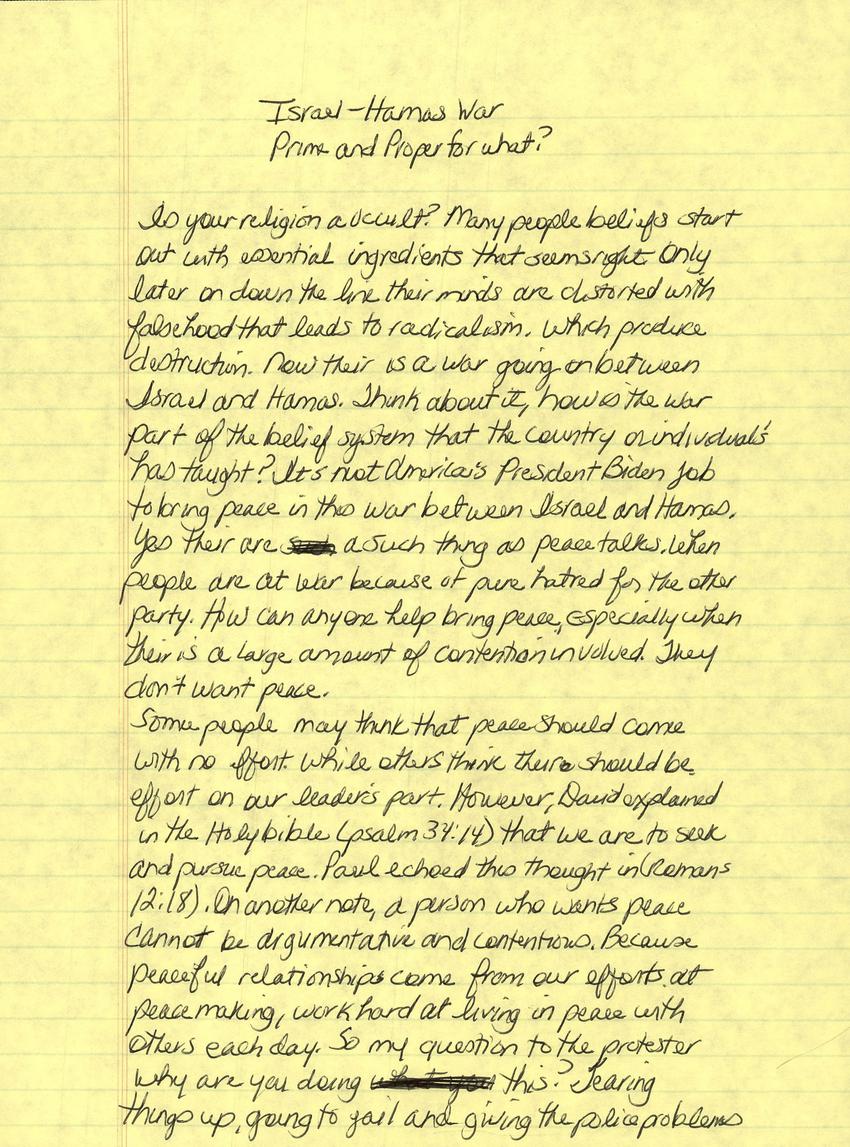 Israel-Hamas War
Prime and Proper for what?
Is your religion a occult? Many people beliefs start
out with essential ingredients that seems right. Only
later on down the line their minds are distorted with
falsehood that leads to radicalism. Which produce
destruction. Now their is a war going on between
Israel and Hamas. Think about it, how is the war
part of the belief system that the country or individual's
has taught? It's not America's President Biden job
to bring peace in this war between Israel and Hamas.
Yes their are a such thing as peace talks. When
people are at war because of pure hatred for the other
party. How can anyone help bring peace, especially when
their is a large amount of contention involved. They
don't want peace.
Some people may think that peace should come
with no effort. While others think there should be
effort on our leader's part. However, David explained
in the Holy bible (psalm 34:14) that we are to seek
and pursue peace. Paul echoed this thought in (Romans
12:18). On another note, a person who wants peace
cannot be argumentative and contentious. Because
peaceful relationships come from our efforts at
peacemaking, work hard at living in peace with
others each day. So my question to the protester
why are you doing this? Tearing
things up, going to jail and giving the police problems